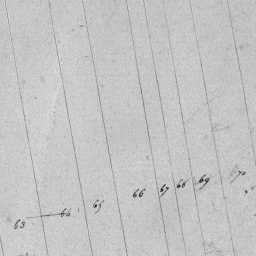 63 64 65 66 67 68 69 70